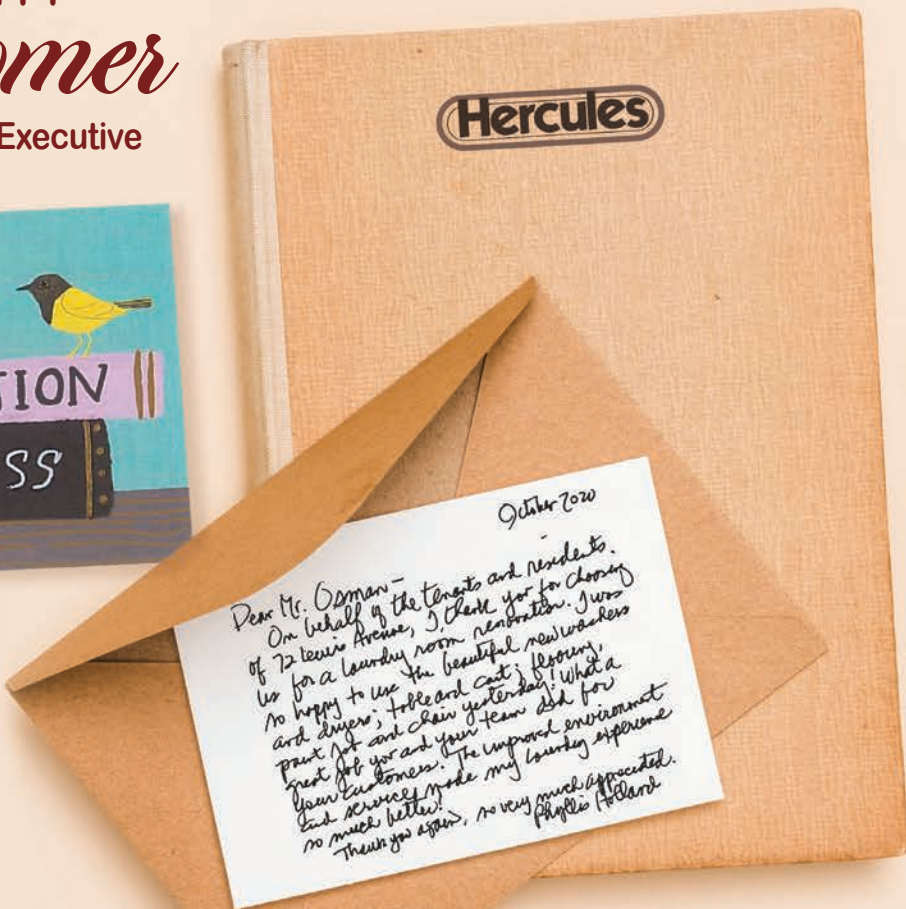 omer
Executive
Hercules
TION
SS
October 2020
Dear Mr. Osman-
On behalf of the tenants and residents
of 72 Lewis Avenue, I thank you for choosing
us for a laundry room renovation. I was
so happy to use the beautiful new washers
and dryers; table and cart; flooring,
paint job and chair yesterday! What a
great job you and your team did for
your customers. The improved environment
and services made my laundry experience
so much better!
Thank you again, so very much appreciated.
Phyllis Holland